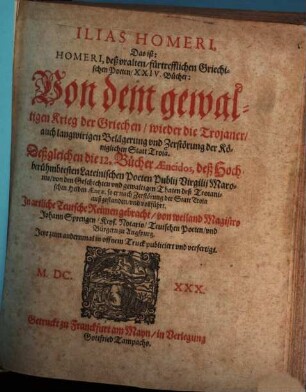 ILIAS HOMERI,
Das ist:
HOMERI, deß vralten / fürtrefflichen Griechi-
schen Poeten / XXIV. Bücher:
Von dem gewal-
tigen Krieg der Griechen / wieder die Trojaner /
auch langwirigen Belägerung vnd Zerstörung der Kö-
niglichen Statt Troja.
Deßgleichen die 12. Bücher Æneidos, deß Hoch-
berühmbtesten Lateinischen Poeten Publij Virgilij Maro-
nis / von den Geschichten vnd gewaltigen Thaten deß Troiani-
schen Helden Æneæ, so er nach Zerstörung der Statt Troia
außgestanden vnd
In artliche Teutsche Reimen gebracht / von weiland Magistro
Johann Sprengen / Keys. Notario / Teutschen Poeten / vnd
Bürgern zu Augspurg.
Jetzt zum andernmal in offnem Truck publiciert vnd verfertigt.
M. DC. XXX.
Getruckt zu Franckfurt am Mayn / in Verlegung
Gottfried Tampachs.